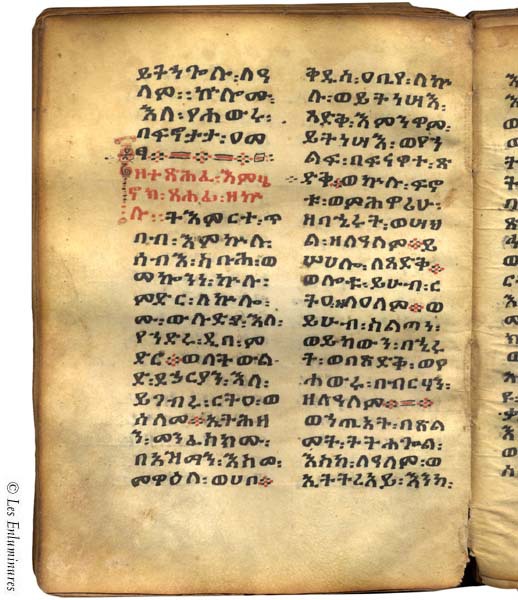 ይትነጐሉ፡ ለዓ
ለም፡፡ ኵሎሙ፡
እለ፡ የሐውሩ፡
በፍኖታተ፡ ዐመ
ፃ፡፡
ዘተጽሕፈ፡ እምሄ
ኖክ፡ ጸሐፊ፡ ዘኵ
ሉ፡ ትእምርተ፡ ጥ
ባብ፡ እምኵሉ፡
ሰብእ፡ ስቡሕ፡ ወ
መኰንነ፡ ኵሉ፡
ምድር፡ ለኵሎ
ሙ፡ ውሉድየ፡ እለ፡
የኀድሩ፡ ዲበ፡ ም
ድር። ወለትውል
ድ፡ ደኃርያን፡ እለ፡
ይገብሩ፡ ርትዐ፡ ወ
ሰላመ። ኢትሕዘ
ን፡ መንፈስክሙ፡
በእዝማን፡ እስመ፡
መዋዕለ፡ ወሀበ።
ቅዱስ፡ ዐቢየ፡ ለኵ
ሉ፡ ወይትነሣእ፡
ጻድቅ፡ እምንዋም፡
ይትነሣእ፡ ወየኀ
ልፍ፡ በፍናዋተ፡ ጽ
ድቅ። ወኵሉ፡ ፍኖ
ቱ፡ ወምሕዋሪሁ፡
ዘበኂሩት፡ ወሣህ
ል፡ ዘለዓለም። ይ
ሣሀሎ፡ ለጻድቅ።
ወሎቱ፡ ይሁብ፡ ር
ትዐ፡ ዘለዓለም። ወ
ይሁብ፡ ስልጣነ፡
ወይከውን፡ በኂሩ
ት፡ ወበጽድቅ፡ ወየ
ሐውሩ፡ በብርሃን፡
ዘለዓለም።
ወኀጢአት፡ በጽል
መት፡ ትትሐጐል፡
እስከ፡ ለዓለም፡ ወ
ኢትትረአይ፡ እንከ፡
© Les Enluminures